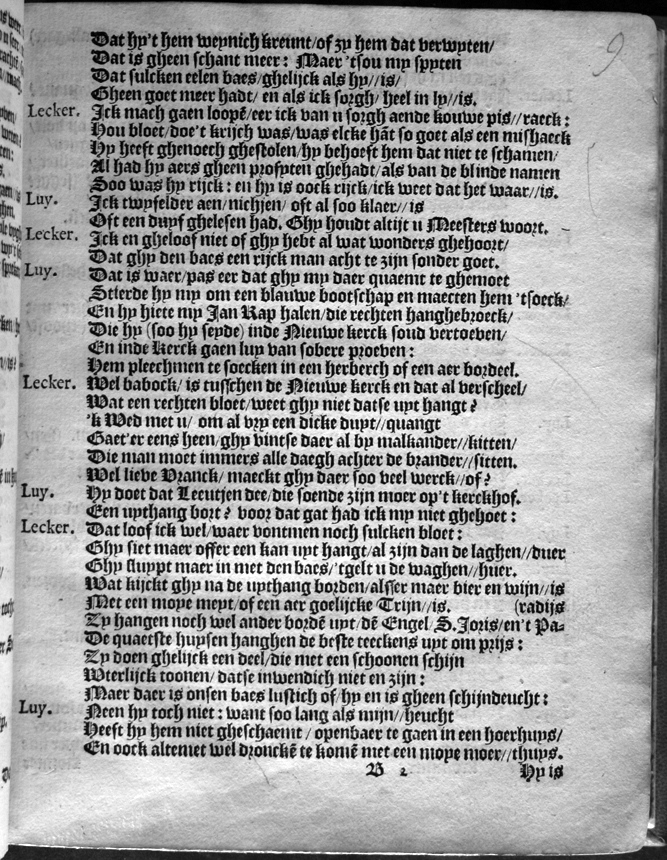 9
Dat hy't hem weynich kreunt/of zy hem dat verwyten/
Dat is gheen schant meer: Maer 'tsou my spyten
Dat sulcken eelen baes/ghelijck als hy//is/
Gheen goet meer hadt/ en als ick sorgh/ heel in ly//is.
Lecker. Ick mach gaen loopē/eer ick van u sorgh aende kouwe pis//raeck:
Hou bloet/doe't krijch was/was elcke hāt soo goet als een mishaeck
Hy heeft ghenoech ghestolen/hy behoeft hem dat niet te schamen/
Al had hy aers gheen profyten ghehadt/als van de blinde namen
Soo was hy rijck: en hy is oock rijck/ick weet dat het waer//is.
Luy. Ick twyfelder aen/nichjen/ oft al soo klaer//is
Oft een duyf ghelesen had. Ghy houdt altijt u Meesters woort.
Lecker. Ick en gheloof niet of ghy hebt al wat wonders ghehoort/
Dat ghy den baes een rijck man acht te zijn sonder goet.
Luy. Dat is waer/pas eer dat ghy my daer quaemt te ghemoet
Stierde hy my om een blauwe bootschap en maecten hem 'tsoeck/
En hy hiete my Jan Rap halen/die rechten hanghebroeck/
Die hy (soo hy seyde) inde Nieuwe kerck soud vertoeven/
En inde kerck gaen luy van sobere proeven:
Hem pleechmen te soecken in een herberch of een aer bordeel.
Lecker. Wel babock/ is tusschen de Nieuwe kerck en dat al verscheel/
Wat een rechten bloet/weet ghy niet datse uyt hangt?
'k Wed met u/ om al vry een dicke duyt//quangt
Gaet'er eens heen/ghy vintse daer al by malkander//kitten/
Die man moet immers alle daegh achter de brander//sitten.
Wel lieve Vranck/ maeckt ghy daer soo veel werck//of?
Luy. Hy doet dat Leeutjen dee/die soende zijn moer op't kerckhof.
Een uythang bort? voor dat gat had ick my niet ghehoet:
Lecker. Dat loof ick wel/waer vontmen noch sulcken bloet:
Ghy siet maer offer een kan uyt hangt/al zijn dan de laghen//duer
Ghy sluypt maer in met den baes/'tgelt u de waghen//huer.
Wat kijckt ghy na de uythang borden/alsser maer bier en wijn//is
Met een moye meyt/of een aer goelijcke Trijn//is. (radijs
Zy hangen noch wel ander bordē uyt/dē Engel/S. Joris/en't Pa-
De quaetste huysen hanghen de beste teeckens uyt om prijs:
Zy doen ghelijck een deel/die met een schoonen schijn
Wterlijck toonen/ datse inwendich niet en zijn:
Maer daer is onsen baes lustich of/hy en is gheen schijndeucht:
Luy. Neen hy toch niet: want soo lang als mijn//heucht
Heeft hy hem niet gheschaemt / openbaer te gaen in een hoerhuys/
En oock altemet wel dronckē te komē met een moye moer//thuys.
B 2 Hy is